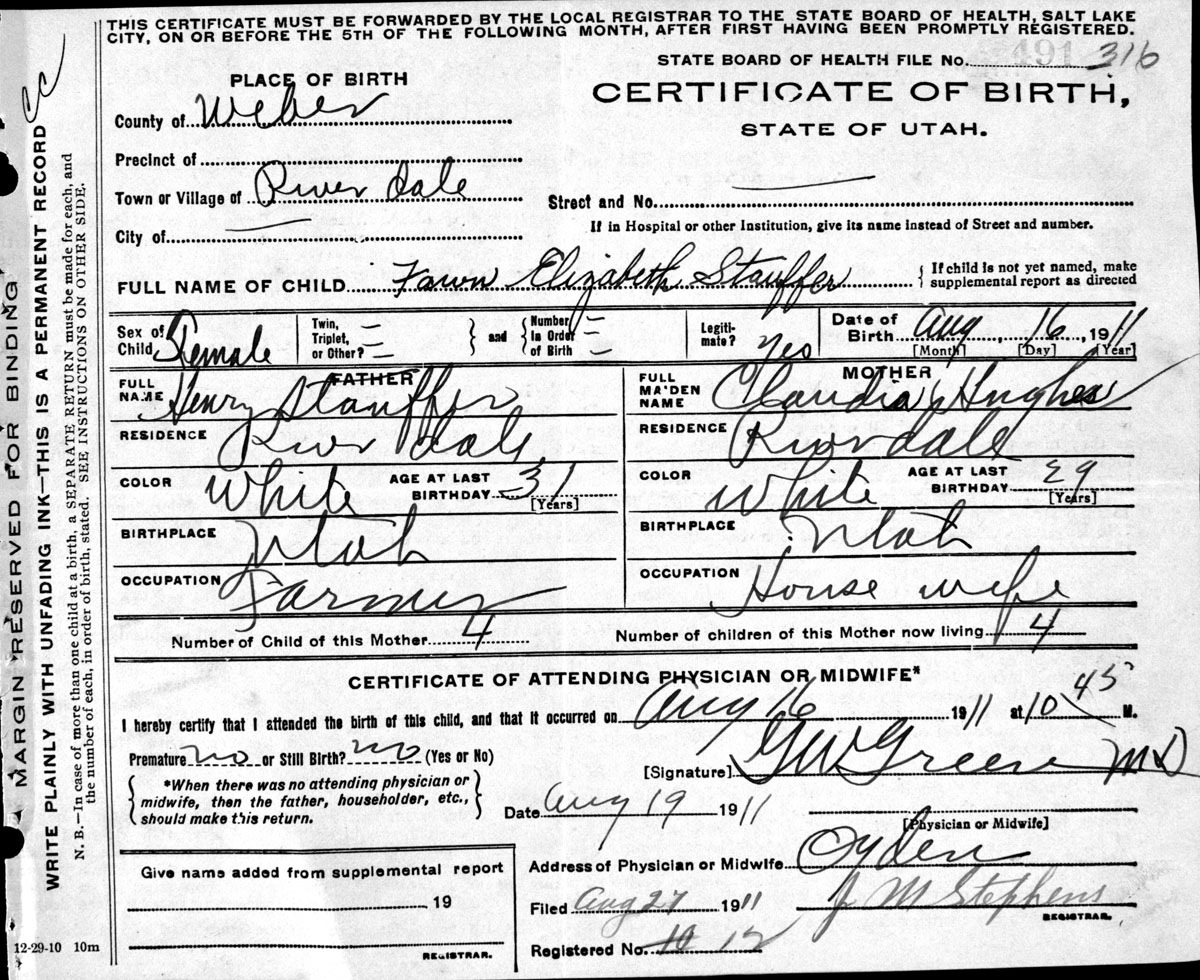 THIS CERTIFICATE MUST BE FORWARDED BY THE LOCAL REGISTRAR TO THE STATE BOARD OF HEALTH, SALT LAKE
CITY, ON OR BEFORE THE 5TH OF THE FOLLOWING MONTH, AFTER FIRST HAVING BEEN PROMPTLY REGISTERED.
MARGIN RESERVED FOR BINDING
WRITE PLAINLY WITH UNFADING INK—THIS IS A PERMANENT RECORD
N. B.—In case of more than one child at a birth, a SEPARATE RETURN must be made for each, and
the number of each, in order of birth, stated. SEE INSTRUCTIONS ON OTHER SIDE.
STATE BOARD OF HEALTH FILE No. 491 316
PLACE OF BIRTH
CERTIFICATE OF BIRTH,
STATE OF UTAH.
County of Weber
Precinct of
Town or Village of River dale
Street and No.
City of
If in Hospital or other Institution, give its name instead of Street and number.
FULL NAME OF CHILD Fawn Elizabeth Stauffer { If child is not yet named, make
supplemental report as directed
Sex of Child Female
Twin, Triplet, or Other? — — — } and { Number in Order of Birth — — —
Legiti-mate? Yes
Date of Birth Aug 16, 1911
[Month] [Day] [Year]
FATHER
MOTHER
FULL NAME Henry Stauffer
FULL MAIDEN NAME Claudia Hughes
RESIDENCE River dale
RESIDENCE Riverdale
COLOR White AGE AT LAST BIRTHDAY 31 [Years]
COLOR White AGE AT LAST BIRTHDAY 29 [Years]
BIRTHPLACE Utah
BIRTHPLACE Utah
OCCUPATION Farmer
OCCUPATION House wife
Number of Child of this Mother 4
Number of children of this Mother now living 4
CERTIFICATE OF ATTENDING PHYSICIAN OR MIDWIFE*
I hereby certify that I attended the birth of this child, and that it occurred on Aug 16 1911 at 10 45 M.
Premature no or Still Birth? no (Yes or No)
[Signature] GW Greene MD
{ *When there was no attending physician or
midwife, then the father, householder, etc.,
should make this return. }
Date Aug 19 1911
[Physician or Midwife]
Address of Physician or Midwife Ogden
Give name added from supplemental report
19
REGISTRAR.
Filed Aug 27 1911 J M Stephens
REGISTRAR.
Registered No. 10 12
12-29-10 10m